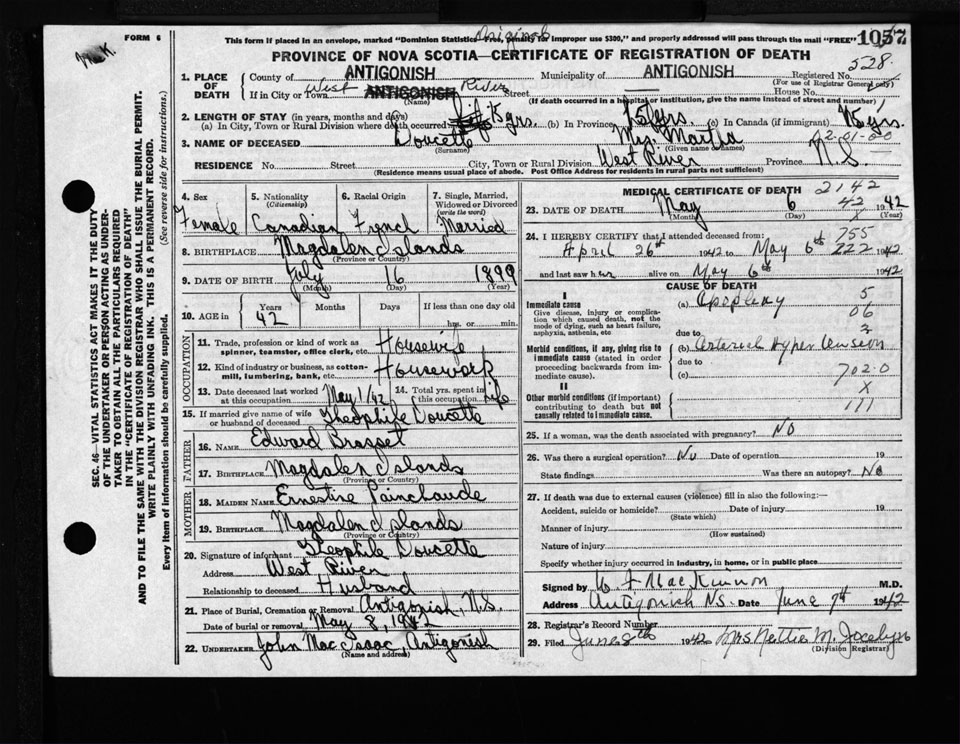 FORM 6
Original
This form if placed in an envelope, marked "Dominion Statistics—Free, penalty for improper use $300," and properly addressed will pass through the mail "FREE"
1057
PROVINCE OF NOVA SCOTIA—CERTIFICATE OF REGISTRATION OF DEATH
528
1. PLACE OF DEATH
County of ANTIGONISH Municipality of ANTIGONISH Registered No.
(For use of Registrar General only)
If in City or Town West ANTIGONISH River Street House No.
(Name) (If death occurred in a hospital or institution, give the name instead of street and number)
2. LENGTH OF STAY (in years, months and days)
(a) In City, Town or Rural Division where death occurred 15 yrs. (b) In Province 15 yrs. (c) In Canada (if immigrant) yrs.
3. NAME OF DECEASED Doucette Mrs. Martha
(Surname) (Given name or names)
02-01-00
RESIDENCE No. Street City, Town or Rural Division West River Province N.S.
(Residence means usual place of abode. Post Office Address for residents in rural parts not sufficient)
4. Sex Female
5. Nationality (Citizenship) Canadian
6. Racial Origin French
7. Single, Married, Widowed or Divorced (write the word) Married
8. BIRTHPLACE Magdalen Islands
(Province or Country)
9. DATE OF BIRTH July 16 1899
(Month) (Day) (Year)
10. AGE in Years 42 Months Days If less than one day old
hrs. or min.
OCCUPATION
11. Trade, profession or kind of work as spinner, teamster, office clerk, etc. Housewife
12. Kind of industry or business, as cotton-mill, lumbering, bank, etc. Housework
13. Date deceased last worked at this occupation May 1/42
14. Total yrs. spent in this occupation life
15. If married give name of wife or husband of deceased Theophile Doucette
FATHER
16. NAME Edward Brasset
17. BIRTHPLACE Magdalen Islands
(Province or Country)
MOTHER
18. MAIDEN NAME Ernestine Painchaude
19. BIRTHPLACE Magdalen Islands
(Province or Country)
20. Signature of informant Theophile Doucette
Address West River
Relationship to deceased Husband
21. Place of Burial, Cremation or Removal Antigonish, N.S.
Date of burial or removal May 8, 1942
22. UNDERTAKER John MacIsaac, Antigonish
(Name and address)
MEDICAL CERTIFICATE OF DEATH 2142
23. DATE OF DEATH May 6 42 1942
(Month) (Day) (Year)
24. I HEREBY CERTIFY that I attended deceased from: 755
April 26th 1942 to May 6th 222 1942
and last saw her alive on May 6th 1942
CAUSE OF DEATH
I
Immediate cause
Give disease, injury or complication which caused death, not the mode of dying, such as heart failure, asphyxia, asthenia, etc
(a) Apoplexy 5
06
due to 2
Morbid conditions, if any, giving rise to immediate cause (stated in order proceeding backwards from immediate cause).
(b) Arterial Hypertension
due to
(c) 702.0
II
X
Other morbid conditions (if important) contributing to death but not causally related to immediate cause.
111
25. If a woman, was the death associated with pregnancy? No
26. Was there a surgical operation? No Date of operation 19
State findings Was there an autopsy? No
27. If death was due to external causes (violence) fill in also the following:—
Accident, suicide or homicide? Date of injury 19
(State which)
Manner of injury
(How sustained)
Nature of injury
Specify whether injury occurred in industry, in home, or in public place
Signed by W F MacKinnon M.D.
Address Antigonish N.S. Date June 7th 1942
28. Registrar's Record Number
29. Filed June 8th 1942 Mrs Nettie M. Jocelyn
(Division Registrar)
SEC. 46—VITAL STATISTICS ACT MAKES IT THE DUTY
OF THE UNDERTAKER OR PERSON ACTING AS UNDERTAKER TO OBTAIN ALL THE PARTICULARS REQUIRED
IN THE "CERTIFICATE OF REGISTRATION OF DEATH"
AND TO FILE THE SAME WITH THE DIVISION REGISTRAR WHO SHALL ISSUE THE BURIAL PERMIT.
WRITE PLAINLY WITH UNFADING INK. THIS IS A PERMANENT RECORD.
Every item of information should be carefully supplied. (See reverse side for instructions.)